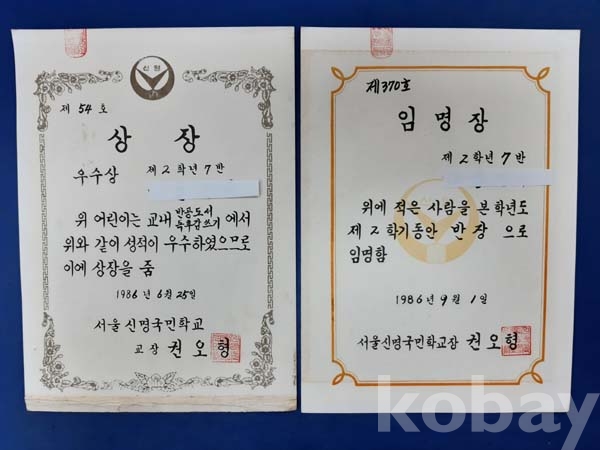 신명
제 54 호
상 장
우수상 제 2 학년 7 반
위 어린이는 교내 반공도서 독후감쓰기 에서
위와 같이 성적이 우수하였으므로
이에 상장을 줌
1986 년 6 월 25 일
서울신명국민학교
교장 권오형
제370호
임명장
제 2 학년 7 반
위에 적은 사람을 본 학년도
제 2 학기동안 반장 으로
임명함
1986 년 9 월 1 일
서울신명국민학교장 권오형
kobay